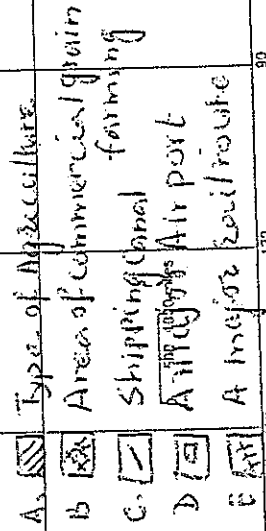 A. Type of Agriculture
B Area of commercial grain
farming
C. Shipping Canal
D Airport
E A major rail route
90